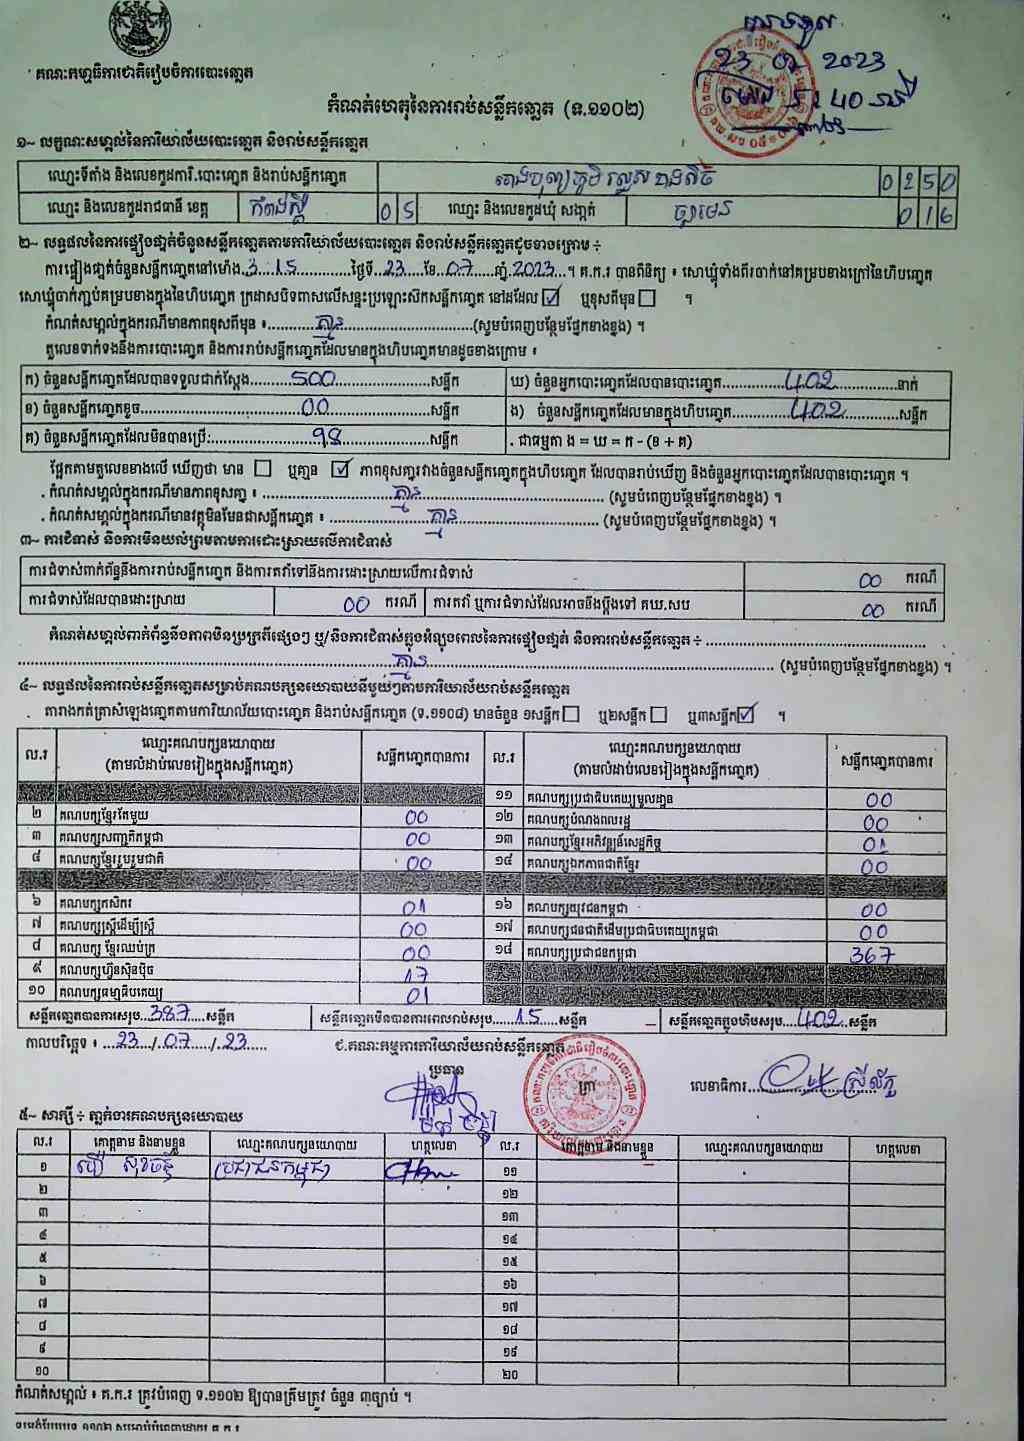 គណៈកម្មាធិការជាតិរៀបចំការបោះឆ្នោត
23 2023
5:40
កំណត់ហេតុនៃការរាប់សន្លឹកឆ្នោត (ទ.១១០២)
១~ លក្ខណៈសម្គាល់នៃការិយាល័យបោះឆ្នោត និងរាប់សន្លឹកឆ្នោត
ឈ្មោះទីតាំង និងលេខកូដការិ.បោះឆ្នោត និងរាប់សន្លឹកឆ្នោត 0250
ឈ្មោះ និងលេខកូដរាជធានី ខេត្ត កំពង់ស្ពឺ 05 ឈ្មោះ និងលេខកូដឃុំ សង្កាត់ 016
២~ លទ្ធផលនៃការផ្ទៀងផ្ទាត់ចំនួនសន្លឹកឆ្នោតតាមការិយាល័យបោះឆ្នោត និងរាប់សន្លឹកឆ្នោតដូចខាងក្រោម ÷
ការផ្ទៀងផ្ទាត់ចំនួនសន្លឹកឆ្នោតនៅម៉ោង 3 15 ថ្ងៃទី 23 ខែ 07 ឆ្នាំ 2023 ។ គ.ក.រ បានពិនិត្យ ៖ សោឃ្មុំទាំងពីរចាក់នៅគម្របខាងក្រៅនៃហិបឆ្នោត
សោឃ្មុំចាក់ភ្ជាប់គម្របខាងក្នុងនៃហិបឆ្នោត ក្រដាសបិទពាសលើសន្ទះប្រឡោះស៊កសន្លឹកឆ្នោត នៅដដែល ☑ ឬខុសពីមុន ☐ ។
កំណត់សម្គាល់ក្នុងករណីមានភាពខុសពីមុន ៖ គ្មាន (សូមបំពេញបន្ថែមផ្នែកខាងខ្នង) ។
តួលេខទាក់ទងនឹងការបោះឆ្នោត និងការរាប់សន្លឹកឆ្នោតដែលមានក្នុងហិបឆ្នោតមានដូចខាងក្រោម ៖
ក) ចំនួនសន្លឹកឆ្នោតដែលបានទទួលជាក់ស្តែង 500 សន្លឹក ឃ) ចំនួនអ្នកបោះឆ្នោតដែលបានបោះឆ្នោត 402 នាក់
ខ) ចំនួនសន្លឹកឆ្នោតខូច 00 សន្លឹក ង) ចំនួនសន្លឹកឆ្នោតដែលមានក្នុងហិបឆ្នោត 402 សន្លឹក
គ) ចំនួនសន្លឹកឆ្នោតដែលមិនបានប្រើ 98 សន្លឹក . ជាធម្មតា ង = ឃ = ក - (ខ + គ)
ផ្អែកតាមតួលេខខាងលើ ឃើញថា មាន ☐ ឬគ្មាន ☑ ភាពខុសគ្នារវាងចំនួនសន្លឹកឆ្នោតក្នុងហិបឆ្នោត ដែលបានរាប់ឃើញ និងចំនួនអ្នកបោះឆ្នោតដែលបានបោះឆ្នោត ។
. កំណត់សម្គាល់ក្នុងករណីមានភាពខុសគ្នា ៖ គ្មាន (សូមបំពេញបន្ថែមផ្នែកខាងខ្នង) ។
. កំណត់សម្គាល់ក្នុងករណីមានវត្ថុមិនមែនជាសន្លឹកឆ្នោត ៖ គ្មាន (សូមបំពេញបន្ថែមផ្នែកខាងខ្នង) ។
៣~ ការជំទាស់ និងការមិនយល់ព្រមតាមការដោះស្រាយលើការជំទាស់
ការជំទាស់ពាក់ព័ន្ធនឹងការរាប់សន្លឹកឆ្នោត និងការតវ៉ាទៅនឹងការដោះស្រាយលើការជំទាស់ 00 ករណី
ការជំទាស់ដែលបានដោះស្រាយ 00 ករណី ការតវ៉ា ឬការជំទាស់ដែលអាចនឹងប្តឹងទៅ គឃ.សប 00 ករណី
កំណត់សម្គាល់ពាក់ព័ន្ធនឹងភាពមិនប្រក្រតីផ្សេងៗ ឬ/និងការជំទាស់ក្នុងអំឡុងពេលនៃការផ្ទៀងផ្ទាត់ និងការរាប់សន្លឹកឆ្នោត ÷
គ្មាន (សូមបំពេញបន្ថែមផ្នែកខាងខ្នង) ។
៤~ លទ្ធផលនៃការរាប់សន្លឹកឆ្នោតសម្រាប់គណបក្សនយោបាយនីមួយៗតាមការិយាល័យរាប់សន្លឹកឆ្នោត
តារាងកត់ត្រាសំឡេងឆ្នោតតាមការិយាល័យបោះឆ្នោត និងរាប់សន្លឹកឆ្នោត (ទ.១១០៨) មានចំនួន ១សន្លឹក ☐ ឬ២សន្លឹក ☐ ឬ៣សន្លឹក ☑ ។
ល.រ ឈ្មោះគណបក្សនយោបាយ (តាមលំដាប់លេខរៀងក្នុងសន្លឹកឆ្នោត) សន្លឹកឆ្នោតបានការ ល.រ ឈ្មោះគណបក្សនយោបាយ (តាមលំដាប់លេខរៀងក្នុងសន្លឹកឆ្នោត) សន្លឹកឆ្នោតបានការ
១១ គណបក្សប្រជាធិបតេយ្យមូលដ្ឋាន 00
២ គណបក្សខ្មែរតែមួយ 00 ១២ គណបក្សបំណងពលរដ្ឋ 00
៣ គណបក្សសញ្ជាតិកម្ពុជា 00 ១៣ គណបក្សខ្មែរអភិវឌ្ឍន៍សេដ្ឋកិច្ច 01
៤ គណបក្សខ្មែររួបរួមជាតិ 00 ១៤ គណបក្សឯកភាពជាតិខ្មែរ 00
៦ គណបក្សកសិករ 01 ១៦ គណបក្សយុវជនកម្ពុជា 00
៧ គណបក្សស្ត្រីដើម្បីស្ត្រី 00 ១៧ គណបក្សជនជាតិដើមប្រជាធិបតេយ្យកម្ពុជា 00
៨ គណបក្ស ខ្មែរឈប់ក្រ 00 ១៨ គណបក្សប្រជាជនកម្ពុជា 367
៩ គណបក្សហ៊្វុនស៊ិនប៉ិច 17
១០ គណបក្សធម្មាធិបតេយ្យ 01
សន្លឹកឆ្នោតបានការសរុប 387 សន្លឹក សន្លឹកឆ្នោតមិនបានការពេលរាប់សរុប 15 សន្លឹក សន្លឹកឆ្នោតក្នុងហិបសរុប 402 សន្លឹក
កាលបរិច្ឆេទ ៖ 23 / 07 / 23 ជ.គណៈកម្មការការិយាល័យរាប់សន្លឹកឆ្នោត
ប្រធាន ត្រា លេខាធិការ
៥~ សាក្សី ÷ ភ្នាក់ងារគណបក្សនយោបាយ
ល.រ គោត្តនាម និងនាមខ្លួន ឈ្មោះគណបក្សនយោបាយ ហត្ថលេខា ល.រ គោត្តនាម និងនាមខ្លួន ឈ្មោះគណបក្សនយោបាយ ហត្ថលេខា
១ ប្រជាជនកម្ពុជា ១១
២ ១២
៣ ១៣
៤ ១៤
៥ ១៥
៦ ១៦
៧ ១៧
៨ ១៨
៩ ១៩
១០ ២០
កំណត់សម្គាល់ ៖ គ.ក.រ ត្រូវបំពេញ ទ.១១០២ ឱ្យបានត្រឹមត្រូវ ចំនួន ៣ច្បាប់ ។